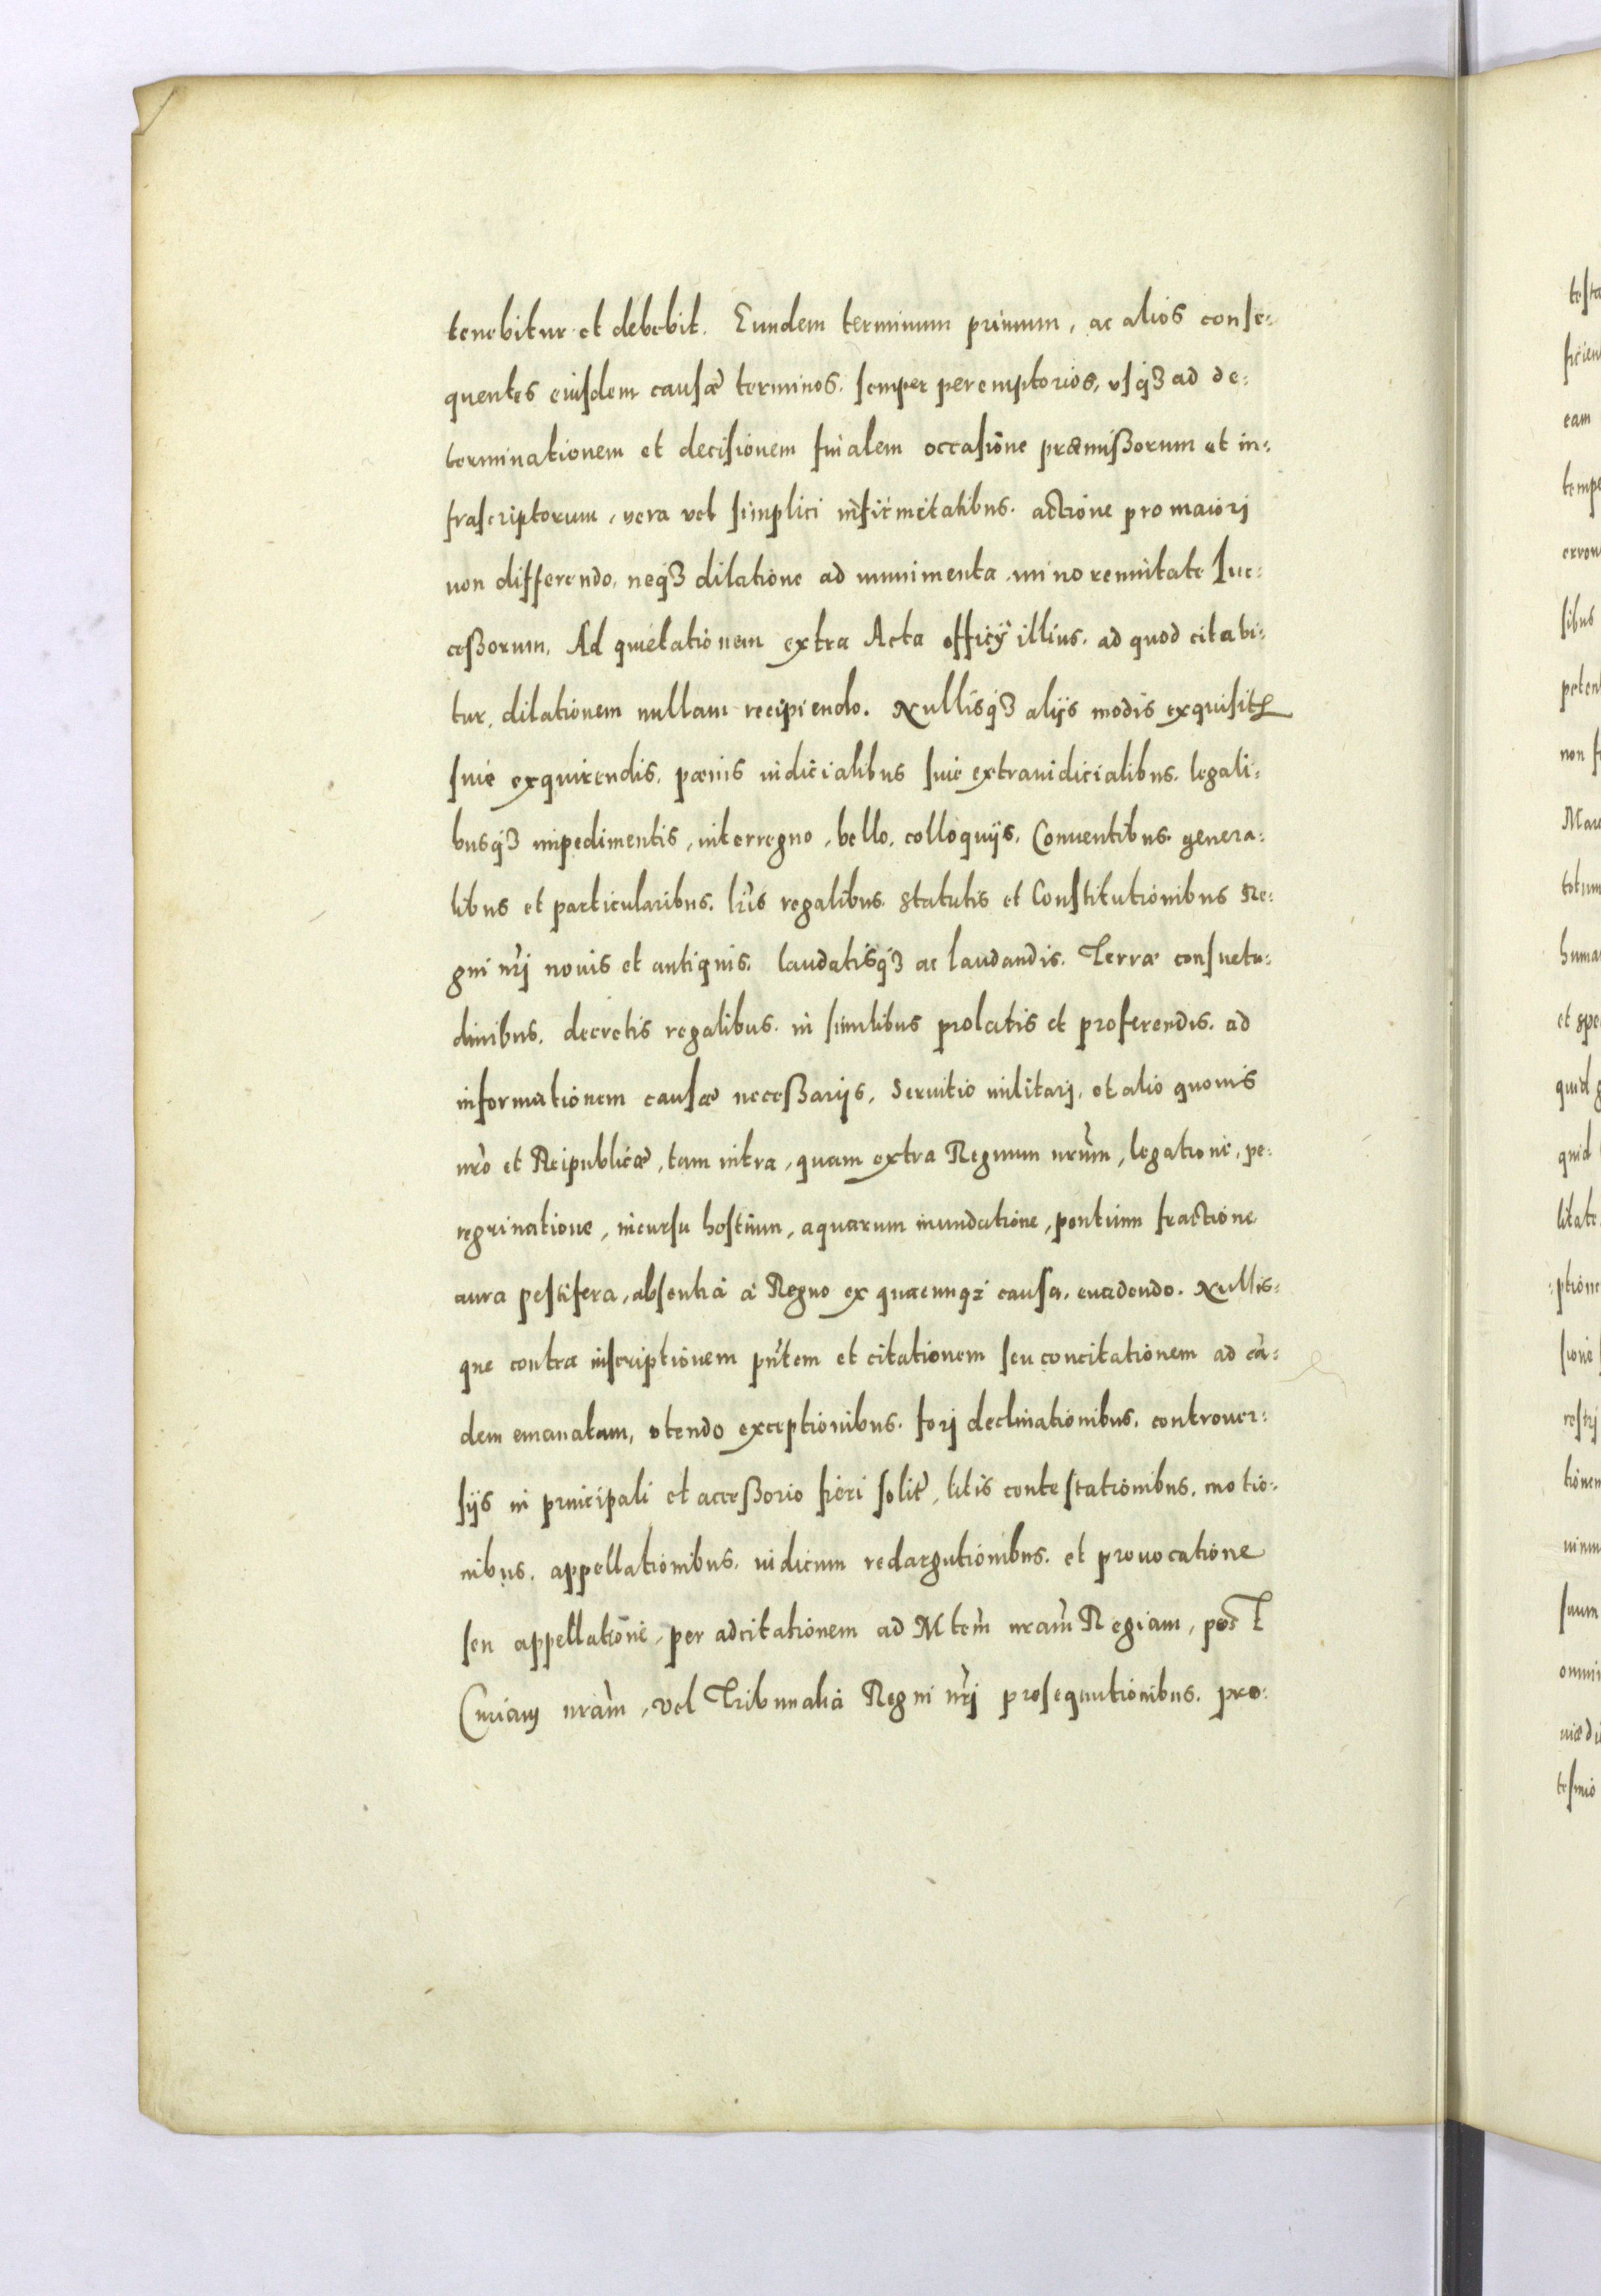 tenebitur et debebit. Eundem terminum primum, ac alios conse-
quentes eiusdem causæ terminos, semper peremptorios, vsq3 ad de-
terminationem et decisionem finalem occasione præmißorum et in-
frascriptorum, vera vel simplici infirmitatibus, actione pro maiori
non differendo, neq3 dilatione ad munimenta minorennitate Suc-
ceßorum, Ad quietationem extra Acta officÿ illius, ad quod citabi-
tur, dilationem nullam recipiendo. Nullisq3 alijs modis exquisitis
siue exquirendis, pænis iudicialibus siue extraiudicialibus, legali-
busq3 impedimentis, interregno, bello, colloquijs, Conuentibus genera-
libus et particularibus, lris regalibus, statutis et Constitutionibus Re-
gni nrj nouis et antiquis, laudatisq3 ac laudandis, Terræ consuetu-
dinibus, decretis regalibus, in similibus prolatis et proferendis, ad
informationem causæ neceßarijs, Seruitio militarj, et alio quouis
nro et Reipublicæ, tam intra, quam extra Regnum nrum, legatione, pe-
regrinatione, incursu hostium, aquarum inundatione, pontium fractione
aura pestifera, absentia à Regno ex quacunq3 causa, euadendo. Nullis-
que contra inscriptionem pntem et citationem seu concitationem ad ea-
dem emanatam, vtendo exceptionibus, forj declinationibus, controuer-
sijs in principali et acceßorio fieri solit, litis contestationibus, motio-
nibus, appellationibus, iudicum redargutionibus, et prouocatione
seu appellatione, per adcitationem ad Mtem nram Regiam, post
Curiam nram, vel Tribunalia Regni nrj prosequutionibus, pro-